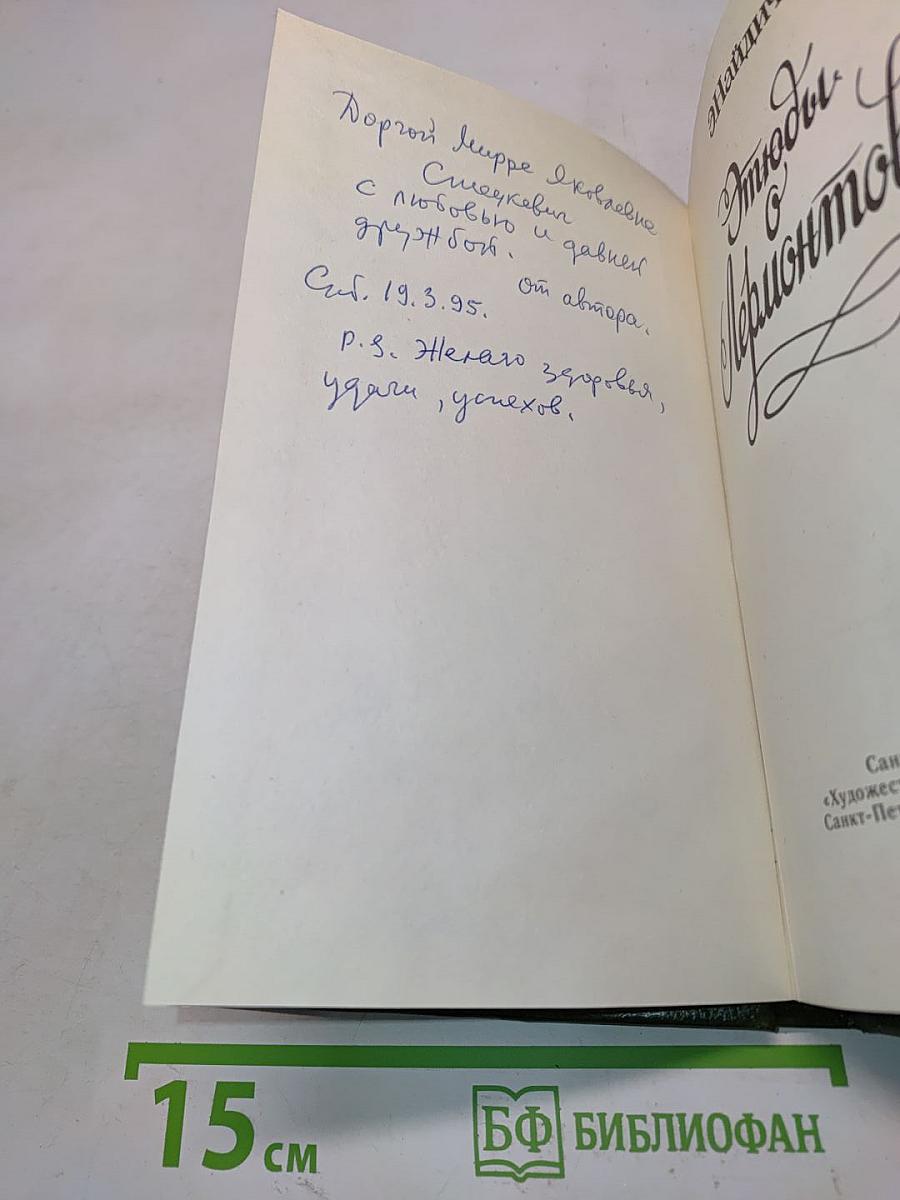 Доргой Мирре Яковлевне
Стецкевич
с любовью и давней
дружбой.
от автора.
Спб. 19.3.95.
P.S. Желаю здоровья,
удачи, успехов.
ЭНАЙДИЧ
Этюды
о
Лермонтов
Сан
«Художес
Санкт-Пет
15 см
БФ БИБЛИОФАН